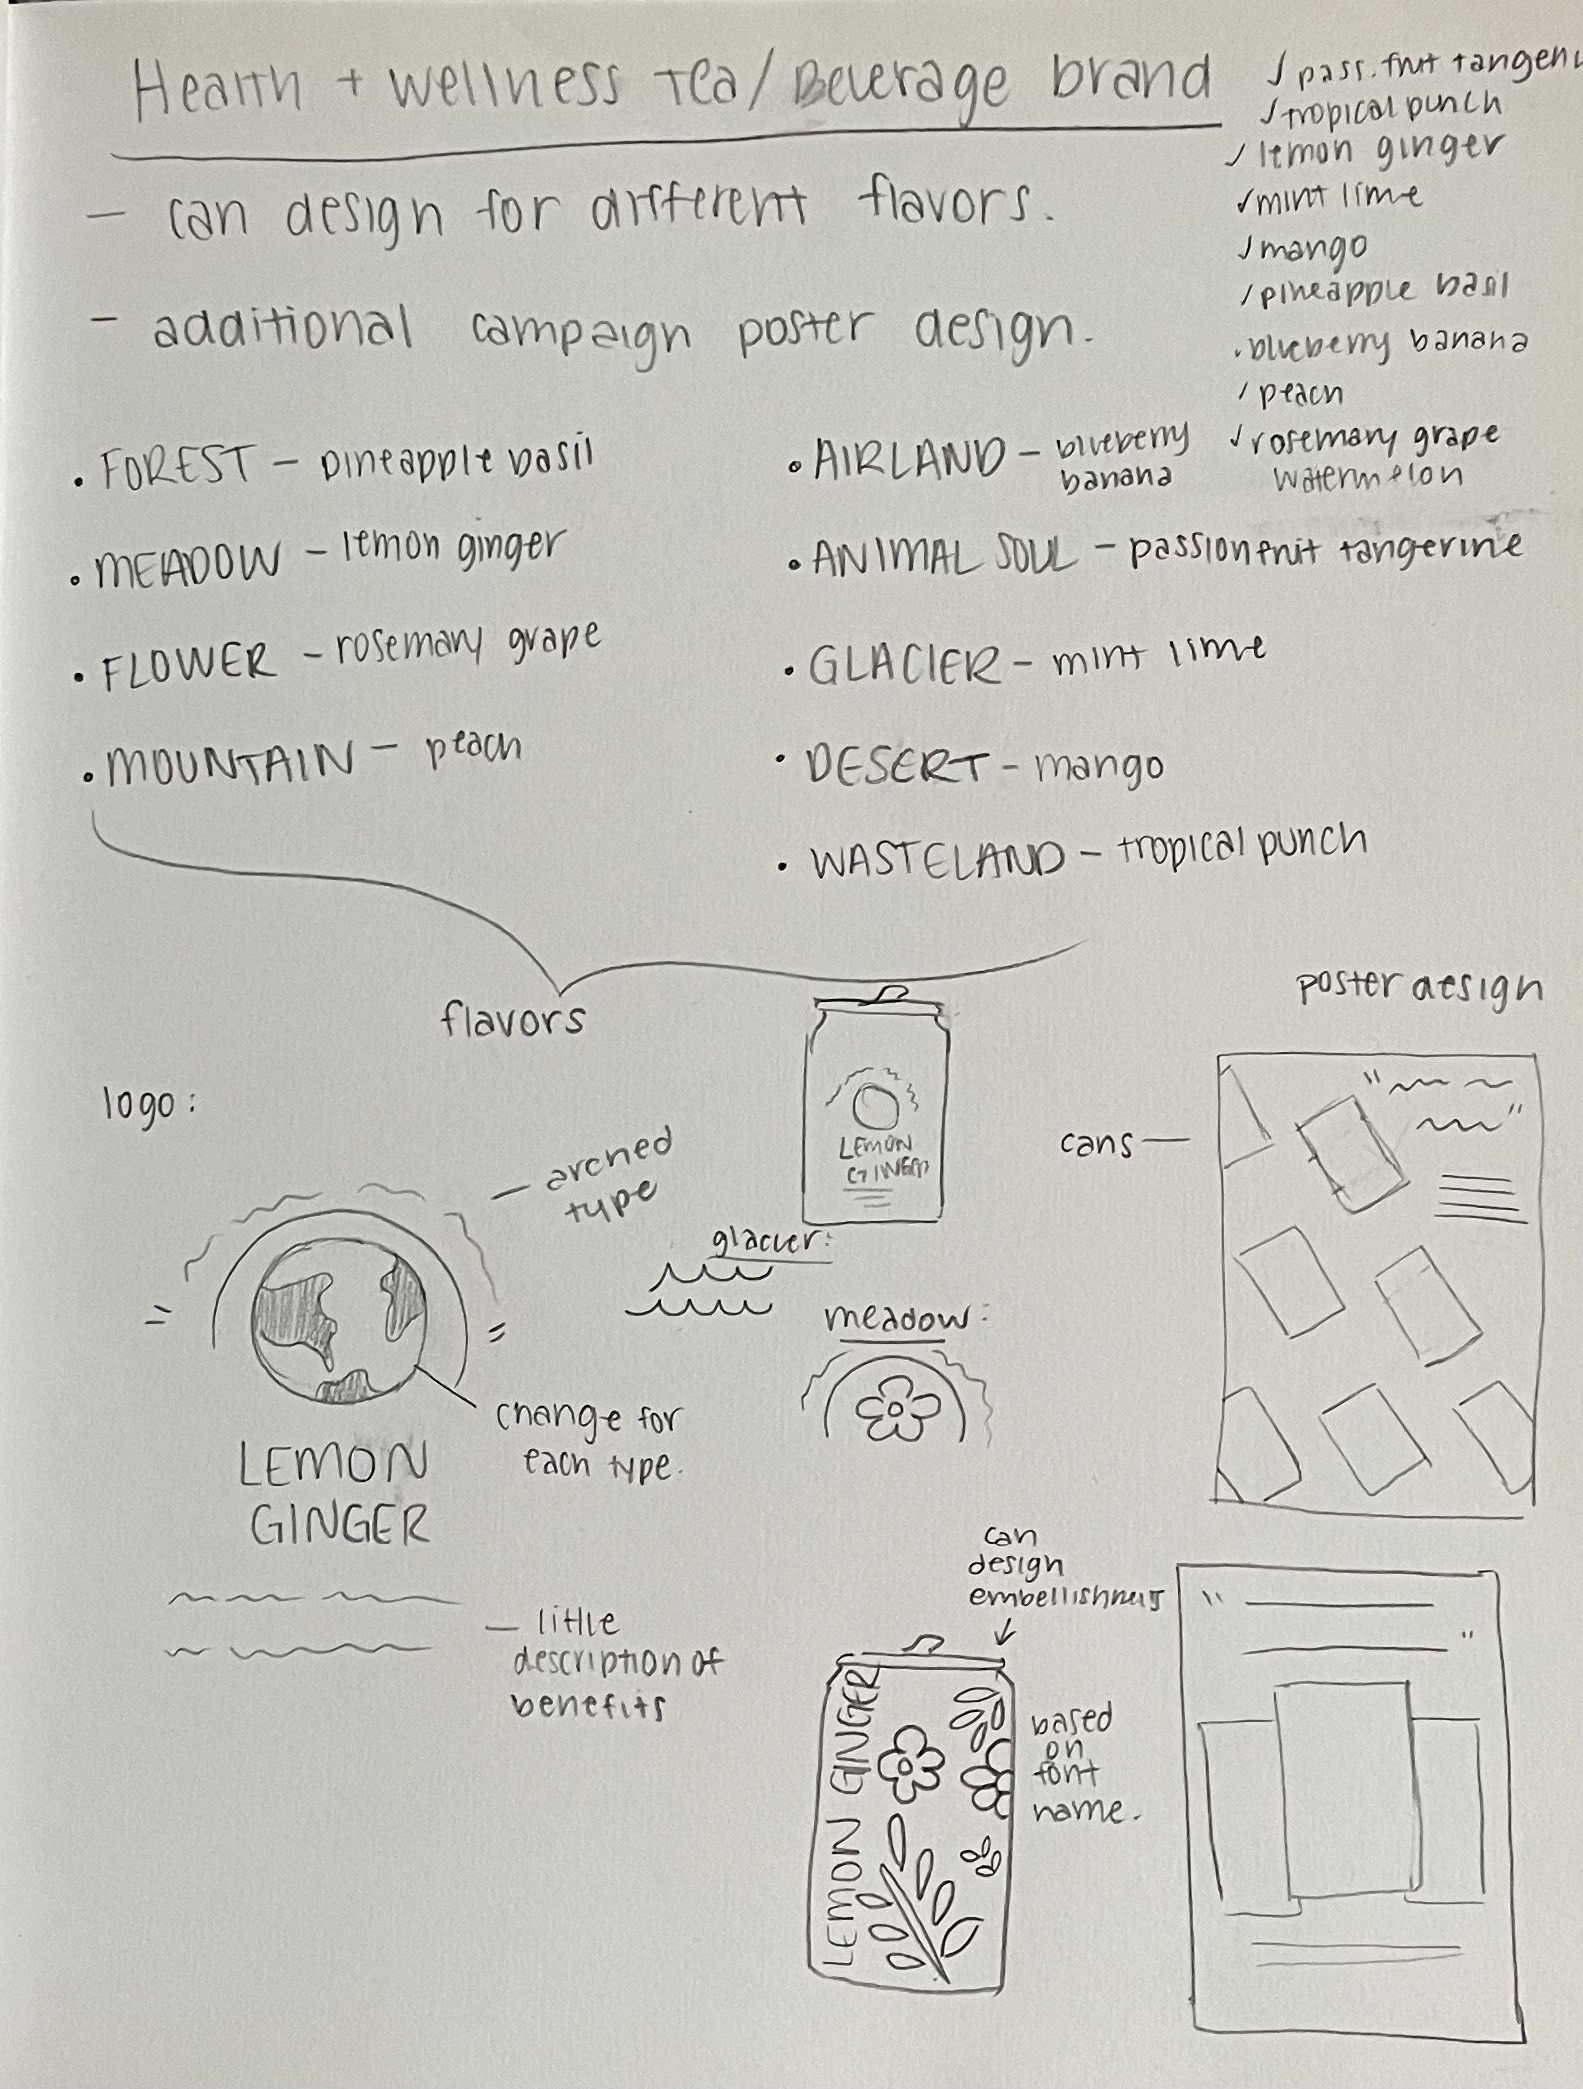 Health + wellness tea/Beverage brand
- can design for different flavors.
- additional campaign poster design.
✓ pass. fruit tangeri
✓ tropical punch
✓ lemon ginger
✓ mint lime
✓ mango
✓ pineapple basil
. blueberry banana
✓ peach
✓ rosemary grape
watermelon
• FOREST - pineapple basil
• MEADOW - lemon ginger
• FLOWER - rosemary grape
• MOUNTAIN - peach
• AIRLAND - blueberry
banana
• ANIMAL SOUL - passionfruit tangerine
• GLACIER - mint lime
• DESERT - mango
• WASTELAND - tropical punch
flavors
logo:
- arched
type
change for
each type.
LEMON
GINGER
- little
description of
benefits
LEMON
GINGER
glacier:
meadow:
can
design
embellishments
based
on
font
name.
LEMON GINGER
poster design
cans -